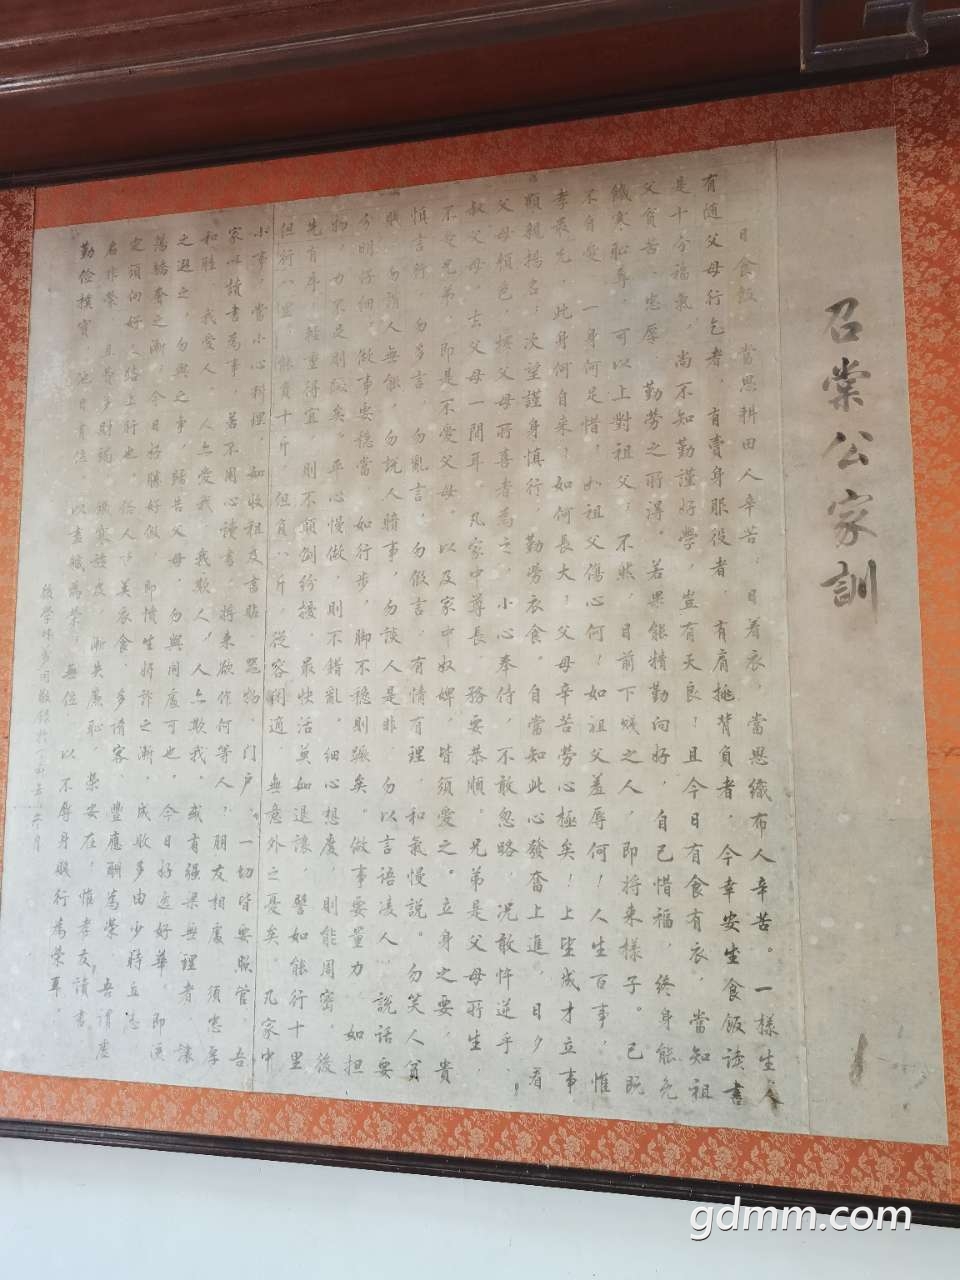 召棠公家訓
日食飯，當思耕田人辛苦；日着衣，當思織布人辛苦。一樣生人
有随父母行乞者，有賣身服役者，有肩挑背負者，今幸安坐食飯读書
是十分福氣，尚不知勤謹好學，豈有天良！且今日有食有衣，當知祖
父貧苦，忠厚勤勞之所得，若果能精勤向好，自己惜福，終身能免
饑寒恥辱，可以上對祖父，不然，目前下贱之人，即将来樣子。己既
不自愛，一身何足惜，如祖父傷心何！如祖父羞辱何！人生百事，惟
孝最先，此身何自来！如何長大！父母辛苦勞心極矣！上望成才立事
顯親揚名；次望謹身慎行，勤勞衣食。自當知此心發奮上進，日夕看
父母顔色，探父母所喜者為之，小心奉侍，不敢忽略，况敢忤逆乎，
叔父母，去父母一間耳，凡家中尊長，務要恭順。兄弟是父母所生，
不愛兄弟，即是不愛父母，以及家中奴婢，皆須愛之。立身之要，貴
慎言行，勿多言，勿亂言，勿假言，有情有理，和氣慢說。勿笑人貧
賤，勿誚人無能，勿說人暗事，勿談人是非，勿以言語凌人，說話要
分明仔细。做事要穩當，如行步，脚不穩則蹶矣。做事要量力，如担
物，力不足則阪矣。平心慢做，則不錯亂，细心想度，則能周密，後
先有序，輕重得宜，則不顛倒紛擾，最快活莫如退讓，譬如能行十里
但行八里，能負十斤，但負八斤，從容閑適，無意外之憂矣。凡家中
小事，當小心料理，如收租及書贴，器物，門户，一切皆要照管，吾
家以讀書為事，若不用心讀書，将来欲作何等人，朋友相處，須忠厚
和睦，我愛人，人亦愛我，我欺人，人亦欺我。或有强梁無理者，讓
之避之，勿與之争，歸告父母，勿與同處可也，今日好逸好華，即淫
蕩驕奢之漸，今日好勝好假，即惰生好詐之漸，成敗多由少時立志
定須向好人路上行也，俗人以美衣食，多請客，豐應酬為榮，吾謂虚
名非榮，且費多財竭，饑寒随及，漸失廉恥，榮安在，惟孝友讀書
勤儉樸實，他日有位，以盡職為榮，無位，以不辱身賤行為榮耳。
gdmm.com